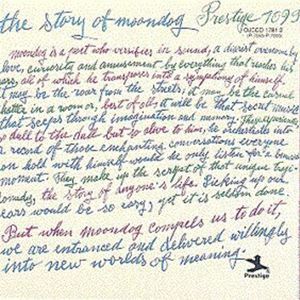 the story of moondog Prestige 7099
OJCCD 1741-2
(P-7099)
moondog is a poet who versifies in sound, a diarist overcome by
love, curiosity and amusement by everything that reaches his
ears all of which he transposes into a symphony of himself.
it may be the roar from the streets, it may be the casual
chatter in a room or, best of all, it will be that secret music
that seeps through imagination and memory. These experiences
so dull to the dull but so alive to him, he orchestrates into
a record of those enchanting conversations everyone
on hold with himself would he only listen for a
moment. They make up the script of that unique
the story of anyone's life. Picking up our
ears would be so easy, yet it is seldom done.
But when moondog compels us to do it,
we are entranced and delivered willingly
into new worlds of meaning.
Prestige